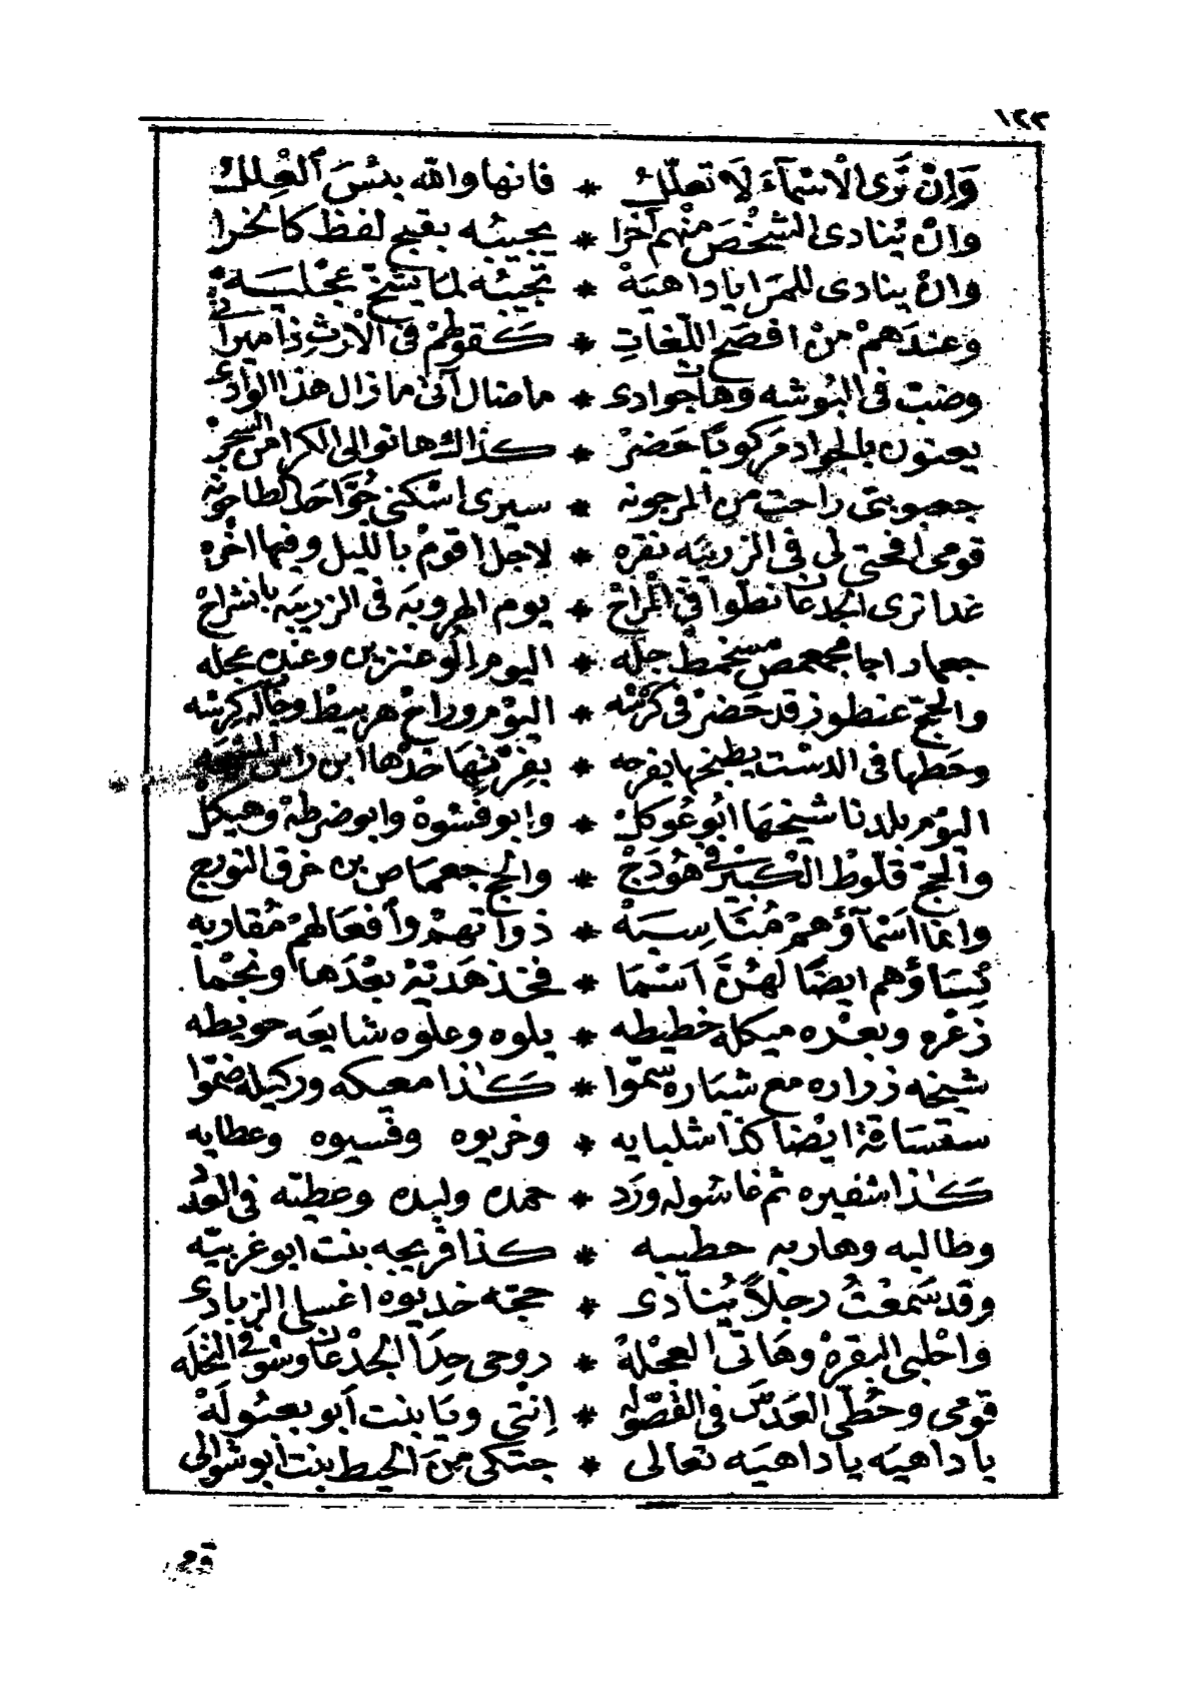 ١٢٣
وَاِنْ تَرى الْاَسْمآءَ لَا تعلّل * فانها والله بئسَ العِلل
وانْ يُنادى الشخْصَ منْهم آخرا * يجيبُه بقبيح لفظ كالخرا
وانْ ينادى للمرَا ياداهيَهْ * تجيبُه لما يشخ
وعندَهمْ منْ افصَح اللّغاتِ * كقولهمْ فى الْارثِ ذا ميراثى
وضبت فى البُوشه وهاتجوادى * ماضال آنى مازال هذا الوادى
يعنون بالجواد مركوبًا حَضرْ * كذاك هاتوا لى الكرا من
جعبوبتى راحت من المرجونه * سيرى اسكنى
قومى افحتى لى فى الزريبَه نقره * لاجل اقومْ بالليل وفيها اخره
غدا ترى الجدعان نطوا فى المراحْ * يوم الهروبَه فى الزريبَه بانشراحْ
جعمار اجا جله * اليومرا عنزين وعنده عجله
والحجّ عنطوز قد حَضرْ فى * اليوْم وراحْ هربيطْ
وحَطها فى الدسْت يطبخها بفرحه * خدْها ابن راس
اليوْم بلدنا شيخهَا ابُو عُوكلْ * وابو فِسْوهْ وابوضرطهْ وهيكلْ
والحجّ قلّوط الكبيرْ فى هوْدَجْ * والحج جعمَاص بن خرق
وانما اَسْمآؤهمْ مُتَناسِبَهْ * ذواتهمْ وأفعَالهمْ مُقاربه
نِسَاؤهم ايضًا لهُنَّ اَسْمَا * فخذ هَديّهْ بعْدَها ونجْما
زَعْره وبعْده ميكله خطيطه * يلوه وعلوه شايعَه حويطه
شيخه زراره مع شباره سمّوا * كذا معيكه وركيله ضمّوا
سقساقة ايْضا كذا شلبايه * وخريوه وفسيوه وعطايه
كذا شفيره ثم غاشوله ورَد * حمده ولبده وعطيّه فى العَدْ
وظالبه وهاربه حطيبه * كذا فريجه بنت ابوغريبَه
وقد سَمعْتُ رجلًا يُنادى * حجّه خديوه اغسلى الزبادى
واحْلبى البقرهْ وهَاتى العجْلهْ * روحى حِدَا الجدْعان وشوفى النخله
قومى وحُطّى العدسَ فى القصْوله * اِنْتى ويَا بنت أبو بعبُولَهْ
ياداهيَه ياداهيَه تعالى * جتكى مِنَ الحيط بنت ابوشوالى